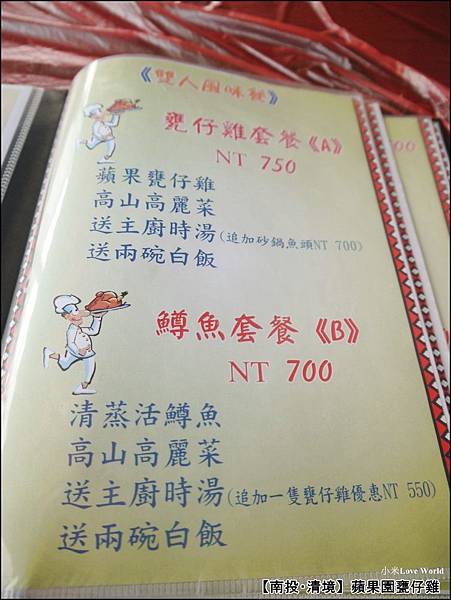 《雙人風味餐》
甕仔雞套餐《A》
NT 750
蘋果甕仔雞
高山高麗菜
送主廚時湯(追加砂鍋魚頭NT 700)
送兩碗白飯
鱒魚套餐《B》
NT 700
清蒸活鱒魚
高山高麗菜
送主廚時湯(追加一隻甕仔雞優惠NT 550)
送兩碗白飯
00
小米Love World
【南投‧清境】蘋果園甕仔雞